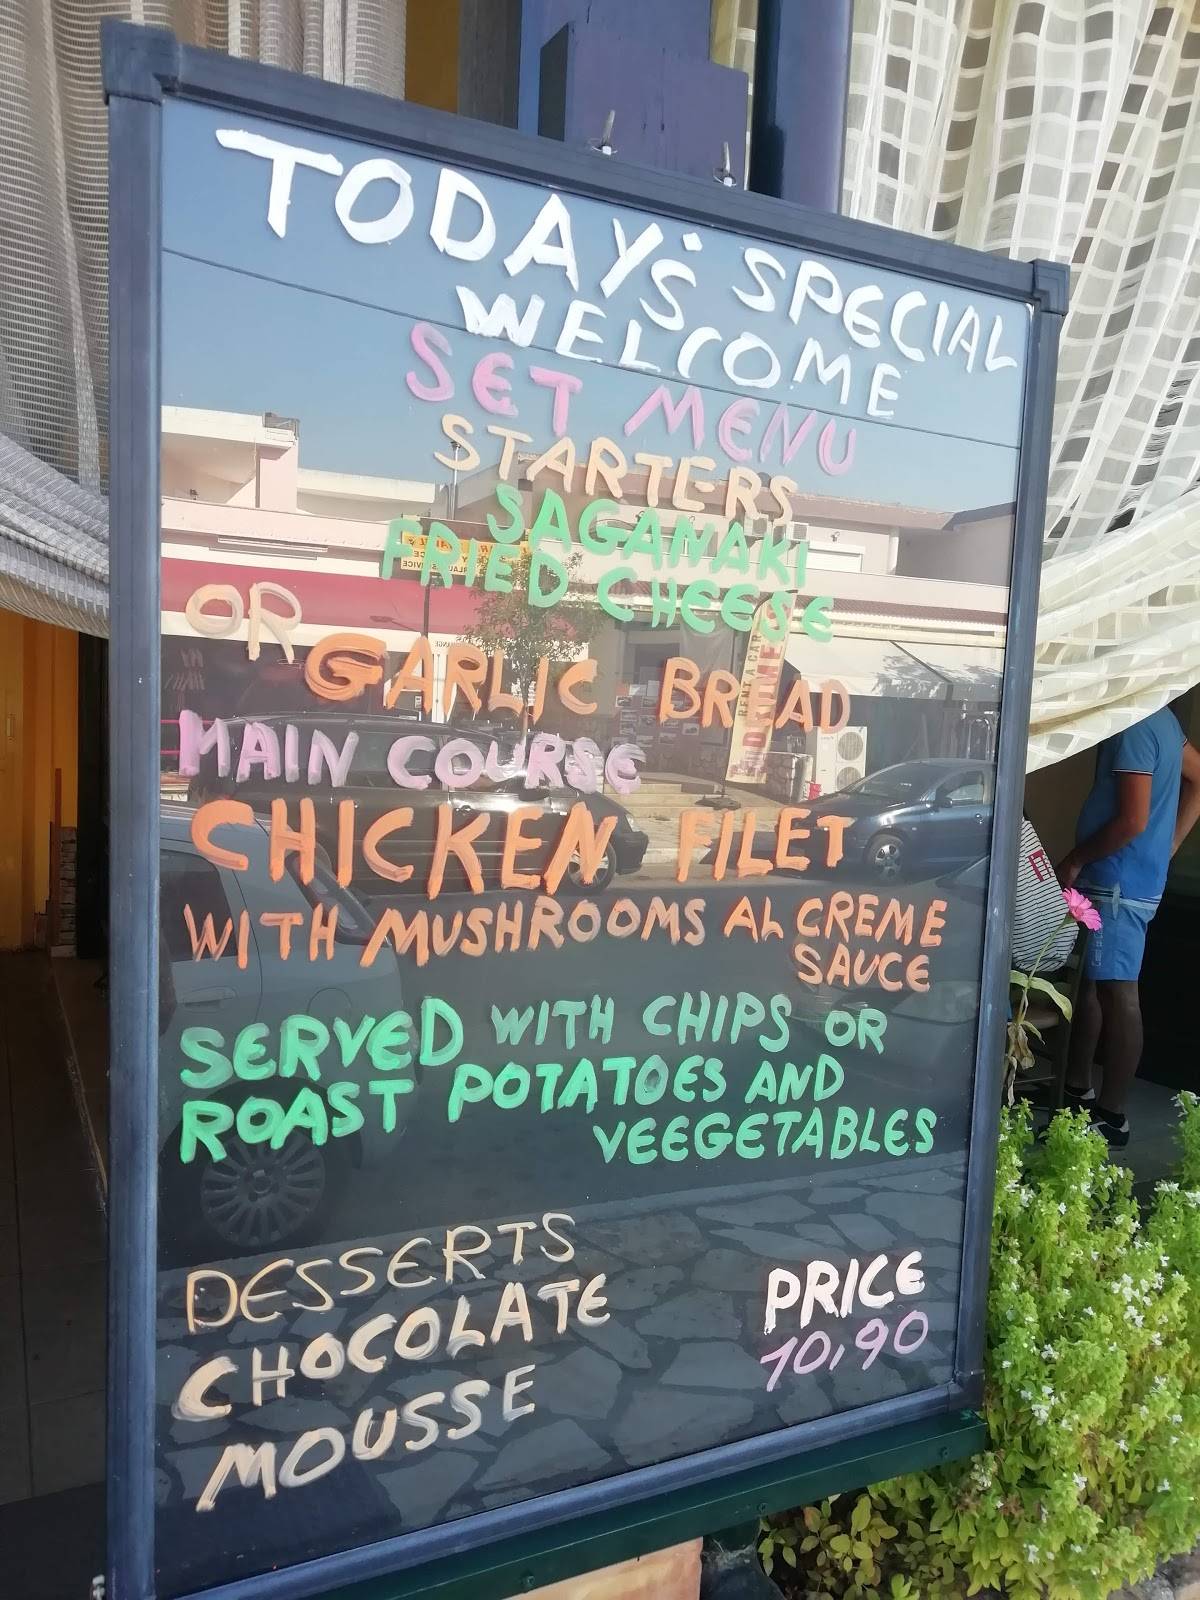 TODAY'S SPECIAL
WELCOME
SET MENU
STARTERS
SAGANAKI
FRIED CHEESE
OR GARLIC BREAD
MAIN COURSE
CHICKEN FILET
WITH MUSHROOMS AL CREME
SAUCE
SERVED WITH CHIPS OR
ROAST POTATOES AND
VEEGETABLES
DESSERTS
CHOCOLATE
MOUSSE
PRICE
10,90
RENT A CAR